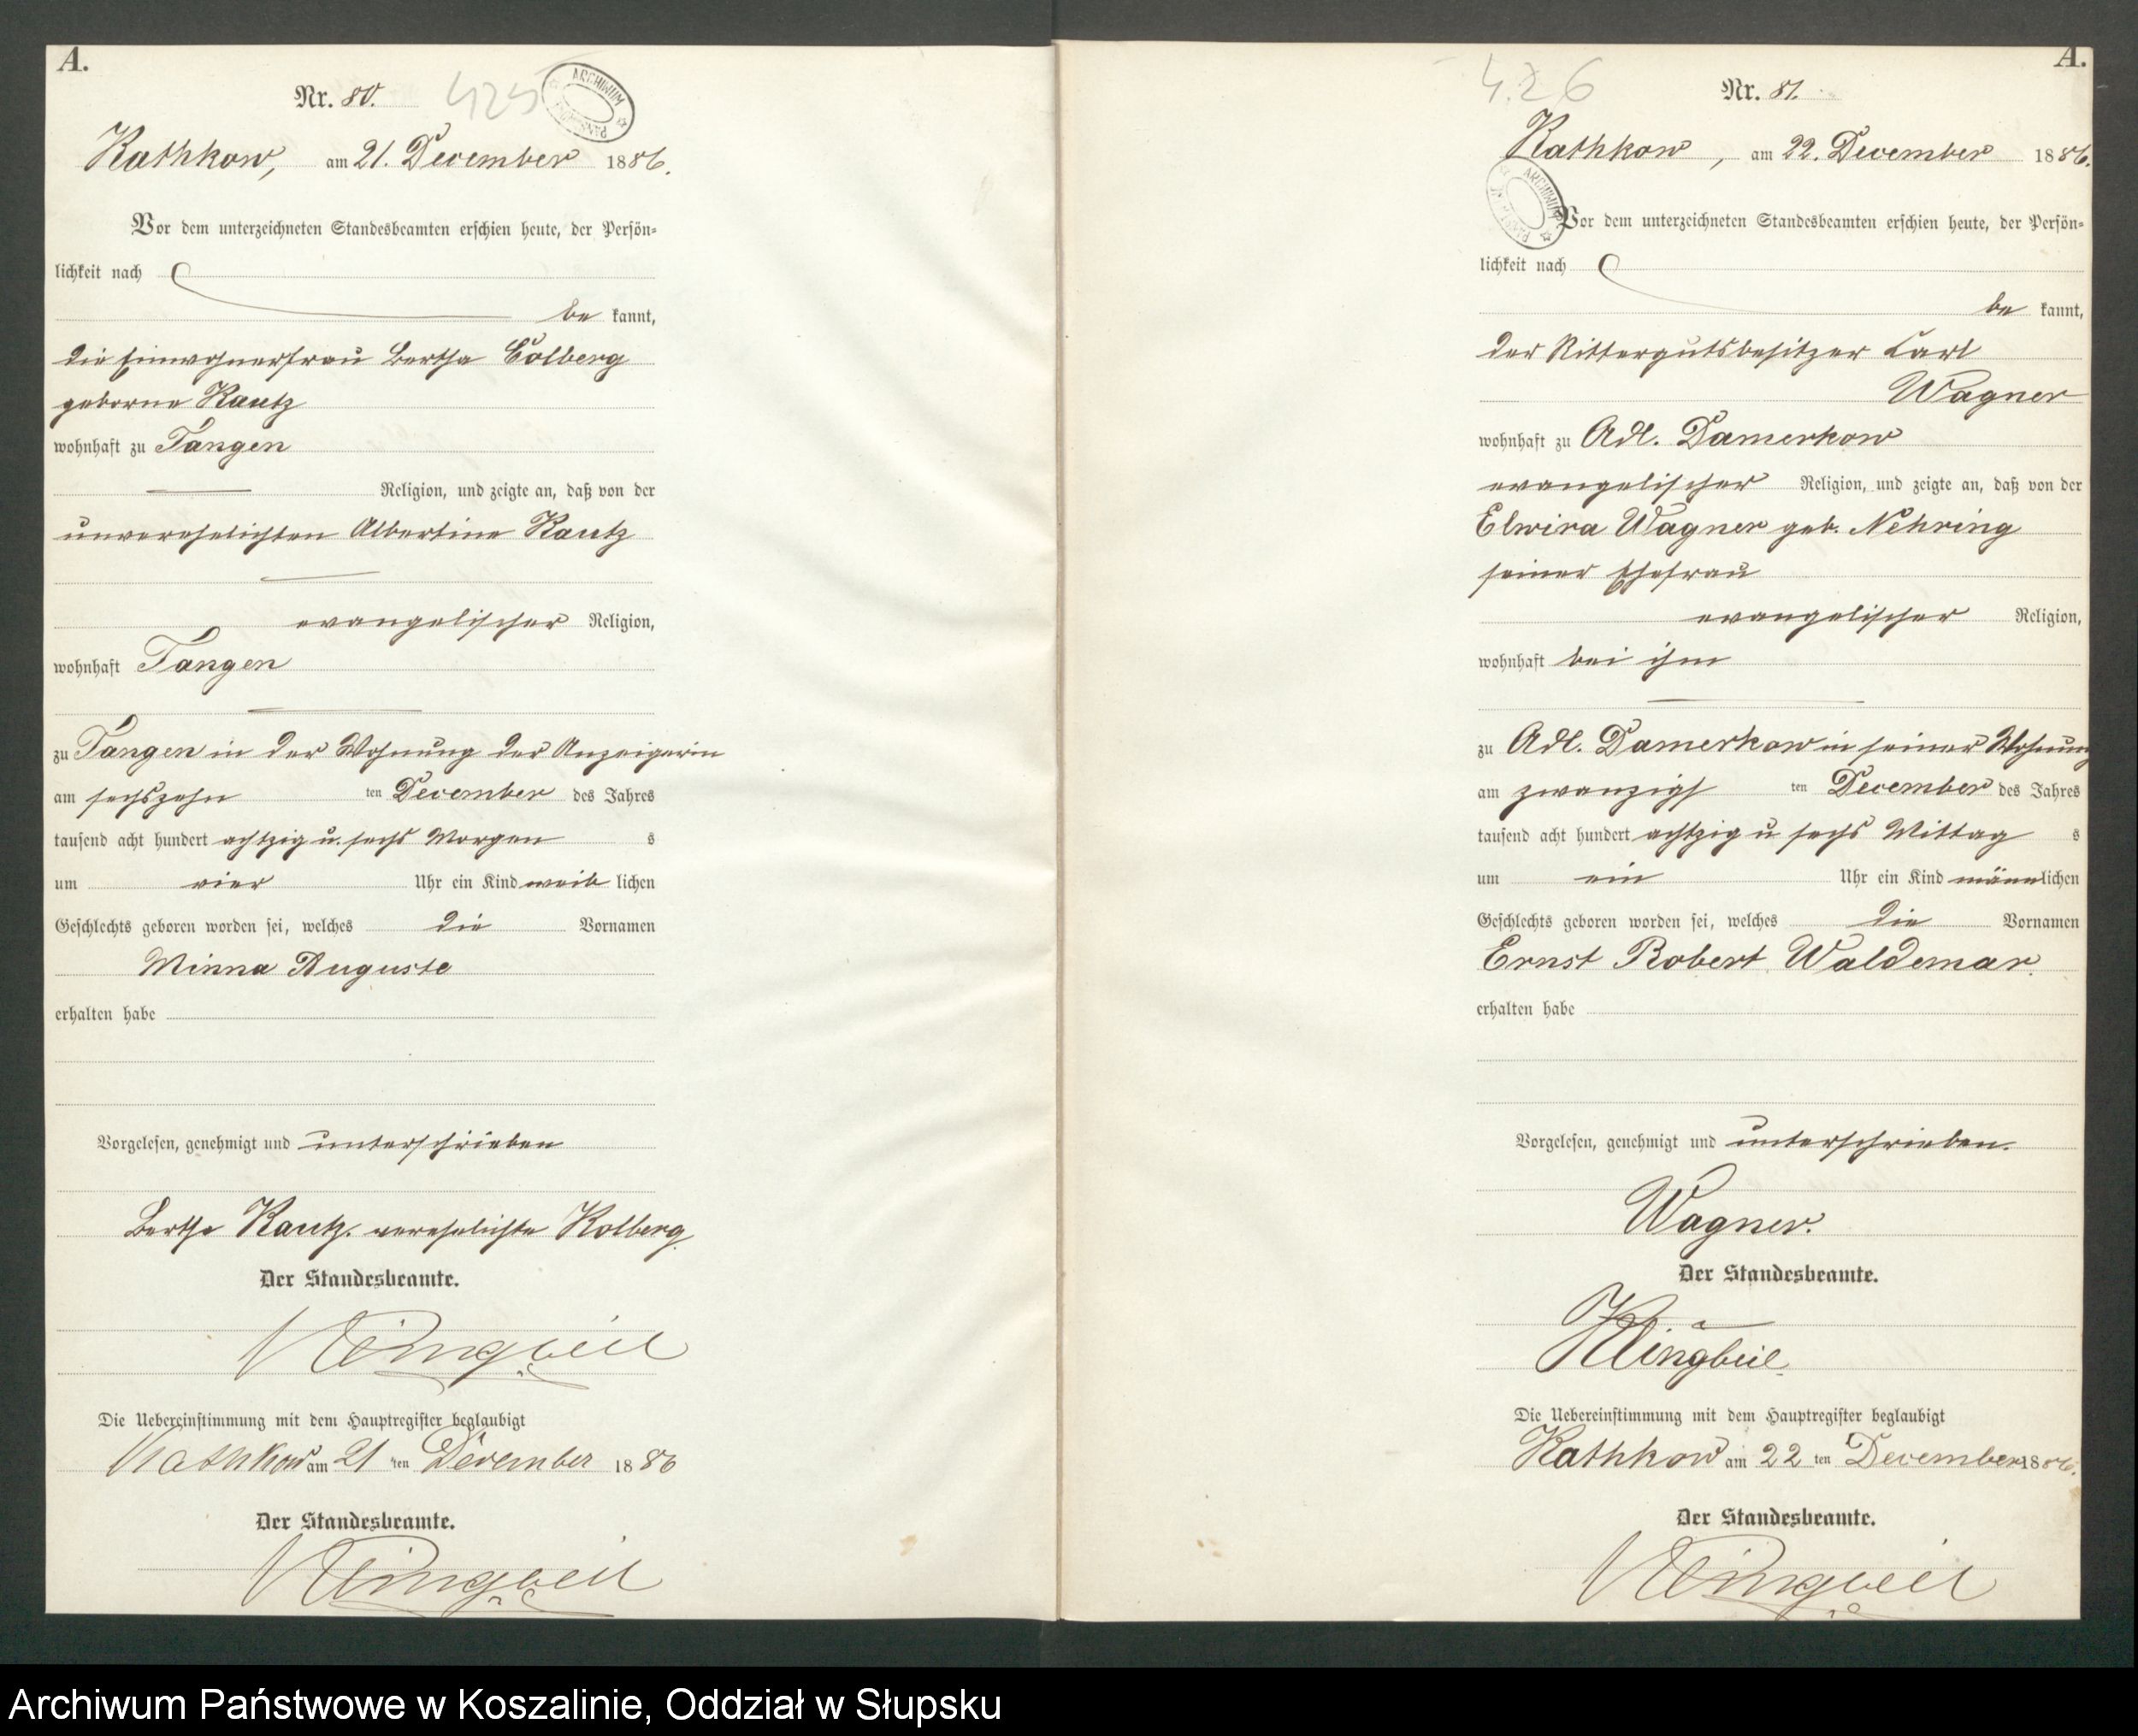 A.
Nr. 80.
425
ARCHIWUM
Rathkow, am 21. December 1886.
Vor dem unterzeichneten Standesbeamten erschien heute, der Persön-
lichkeit nach
be kannt,
die Einwohnerfrau Bertha Colberg
geborne Kautz
wohnhaft zu Tangen
Religion, und zeigte an, daß von der
unverehelichten Albertine Kautz
evangelischer Religion,
wohnhaft Tangen
zu Tangen in der Wohnung der Anzeigerin
am sechszehn ten December des Jahres
tausend acht hundert achtzig u. sechs Morgen s
um vier Uhr ein Kind weib lichen
Geschlechts geboren worden sei, welches die Vornamen
Minna Auguste
erhalten habe
Vorgelesen, genehmigt und unterschrieben
Bertha Kautz. verehelichte Kolberg.
Der Standesbeamte.
Klingbeil
Die Uebereinstimmung mit dem Hauptregister beglaubigt
Rathkow am 21 ten December 1886
Der Standesbeamte.
Klingbeil
A.
426
Nr. 81.
Rathkow, am 22. December 1886.
ARCHIWUM
Vor dem unterzeichneten Standesbeamten erschien heute, der Persön-
lichkeit nach
be kannt,
der Rittergutsbesitzer Carl
Wagner
wohnhaft zu Adl. Damerkow
evangelischer Religion, und zeigte an, daß von der
Elwira Wagner geb. Nehring
seiner Ehefrau
evangelischer Religion,
wohnhaft bei ihm
zu Adl. Damerkow in seiner Wohnung
am zwanzigs ten December des Jahres
tausend acht hundert achtzig u sechs Mittag s
um ein Uhr ein Kind männlichen
Geschlechts geboren worden sei, welches die Vornamen
Ernst Robert Waldemar.
erhalten habe
Vorgelesen, genehmigt und unterschrieben.
Wagner.
Der Standesbeamte.
Klingbeil
Die Uebereinstimmung mit dem Hauptregister beglaubigt
Rathkow am 22 ten December 1886.
Der Standesbeamte.
Klingbeil
Archiwum Państwowe w Koszalinie, Oddział w Słupsku